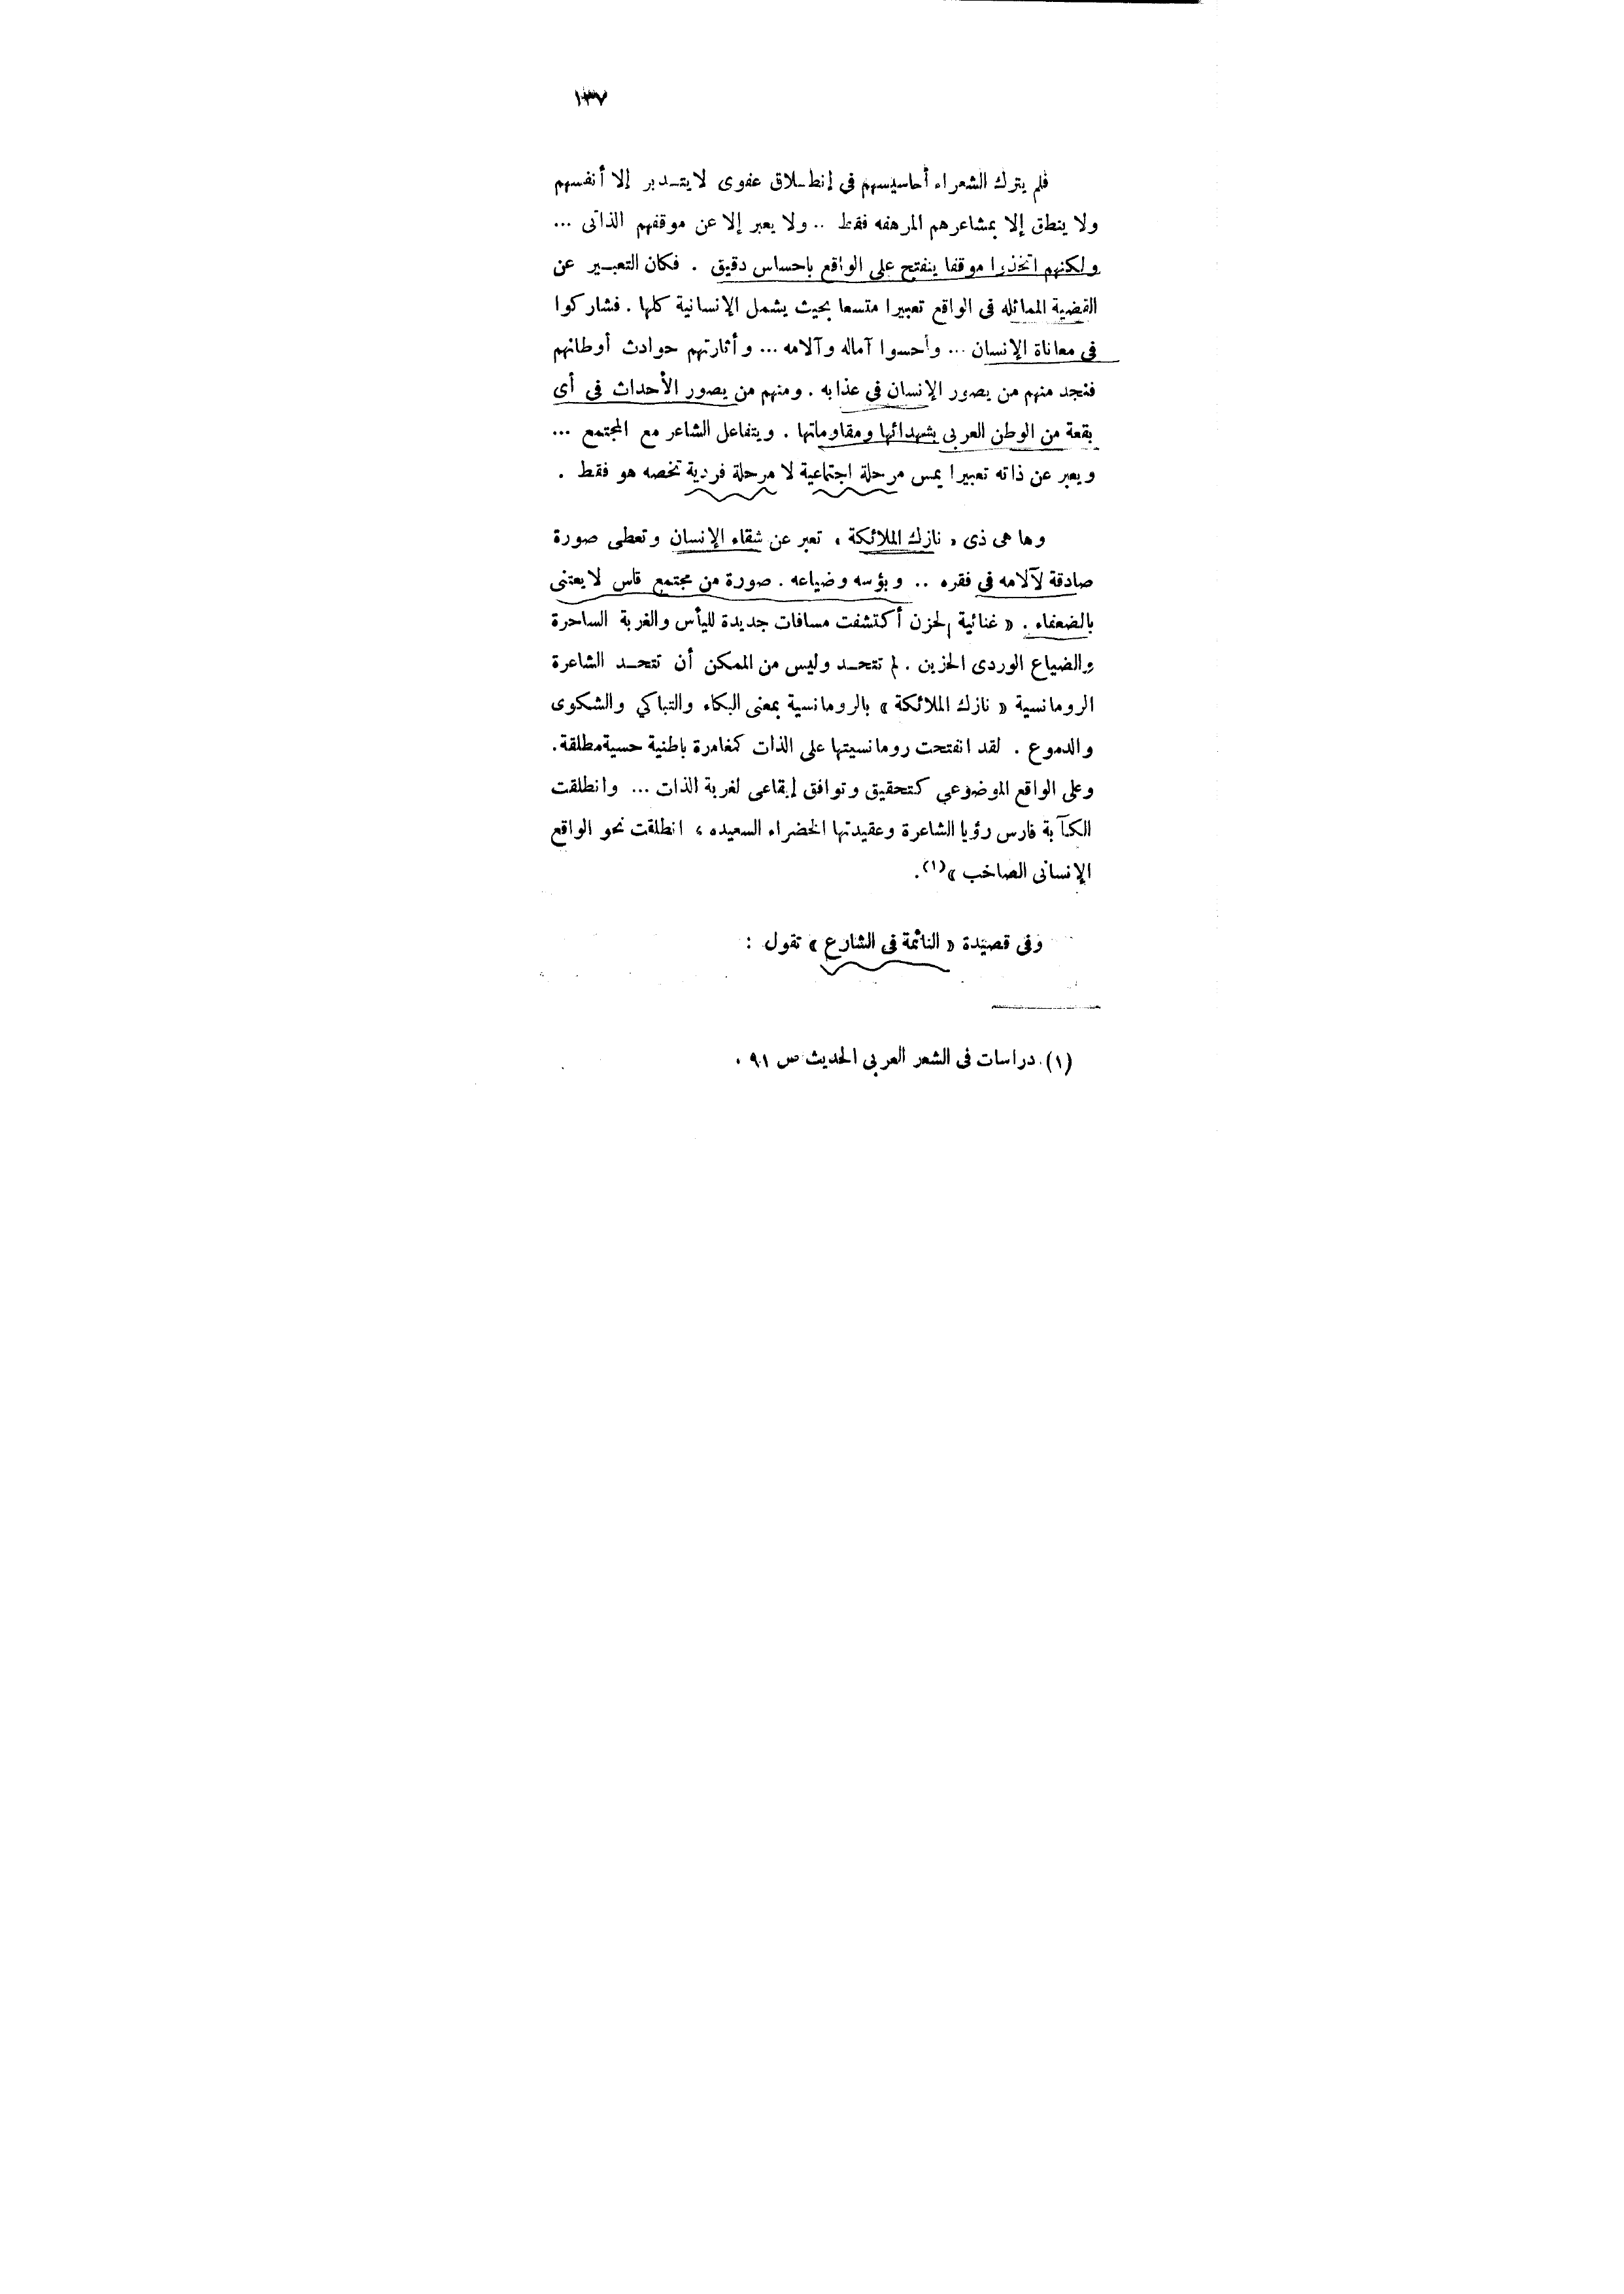 ١٣٧
فلم يترك الشعراء أحاسيسهم فى إنطـلاق عفوى لايتـدبر إلا أنفسهم
ولا ينطق إلا بمشاعرهم المرهفه فقط .. ولا يعبر إلا عن موقفهم الذاتى ...
ولكنهم اتخذوا موقفا ينفتح على الواقع باحساس دقيق . فكان التعبـير عن
القضية المماثله فى الواقع تعبيرا متسعا بحيث يشمل الإنسانية كلها . فشاركوا
فى معاناة الإنسان ... وأحسوا آماله وآلامه ... وأثارتهم حوادث أوطانهم
فنجد منهم من يصور الإنسان فى عذابه . ومنهم من يصور الأحداث فى أى
بقعة من الوطن العربى بشهدائها ومقاوماتها . ويتفاعل الشاعر مع المجتمع ...
ويعبر عن ذاته تعبيرا يمس مرحلة اجتماعية لا مرحلة فردية تخصه هو فقط .
وها هى ذى « نازك الملائكة » تعبر عن شقاء الإنسان وتعطى صورة
صادقة لآلامه فى فقره .. وبؤسه وضياعه . صورة من مجتمع قاس لايعتنى
بالضعفاء . « غنائية الحزن أكتشفت مسافات جديدة لليأس والغربة الساحرة
والضياع الوردى الحزين . لم تتحـد وليس من الممكن أن تتحـد الشاعرة
الرومانسية « نازك الملائكة » بالرومانسية بمعنى البكاء والتباكي والشكوى
والدموع . لقد انفتحت رومانسيتها على الذات كمغامرة باطنية حسية مطلقة.
وعلى الواقع الموضوعي كتحقيق وتوافق إيقاعى لغربة الذات ... وانطلقت
الكآبة فارس رؤيا الشاعرة وعقيدتها الخضراء السعيده ، انطلقت نحو الواقع
الإنسانى الصاخب »(١).
وفى قصيدة « النائمة فى الشارع » تقول :
(١) دراسات فى الشعر العربى الحديث ص ٩١ .